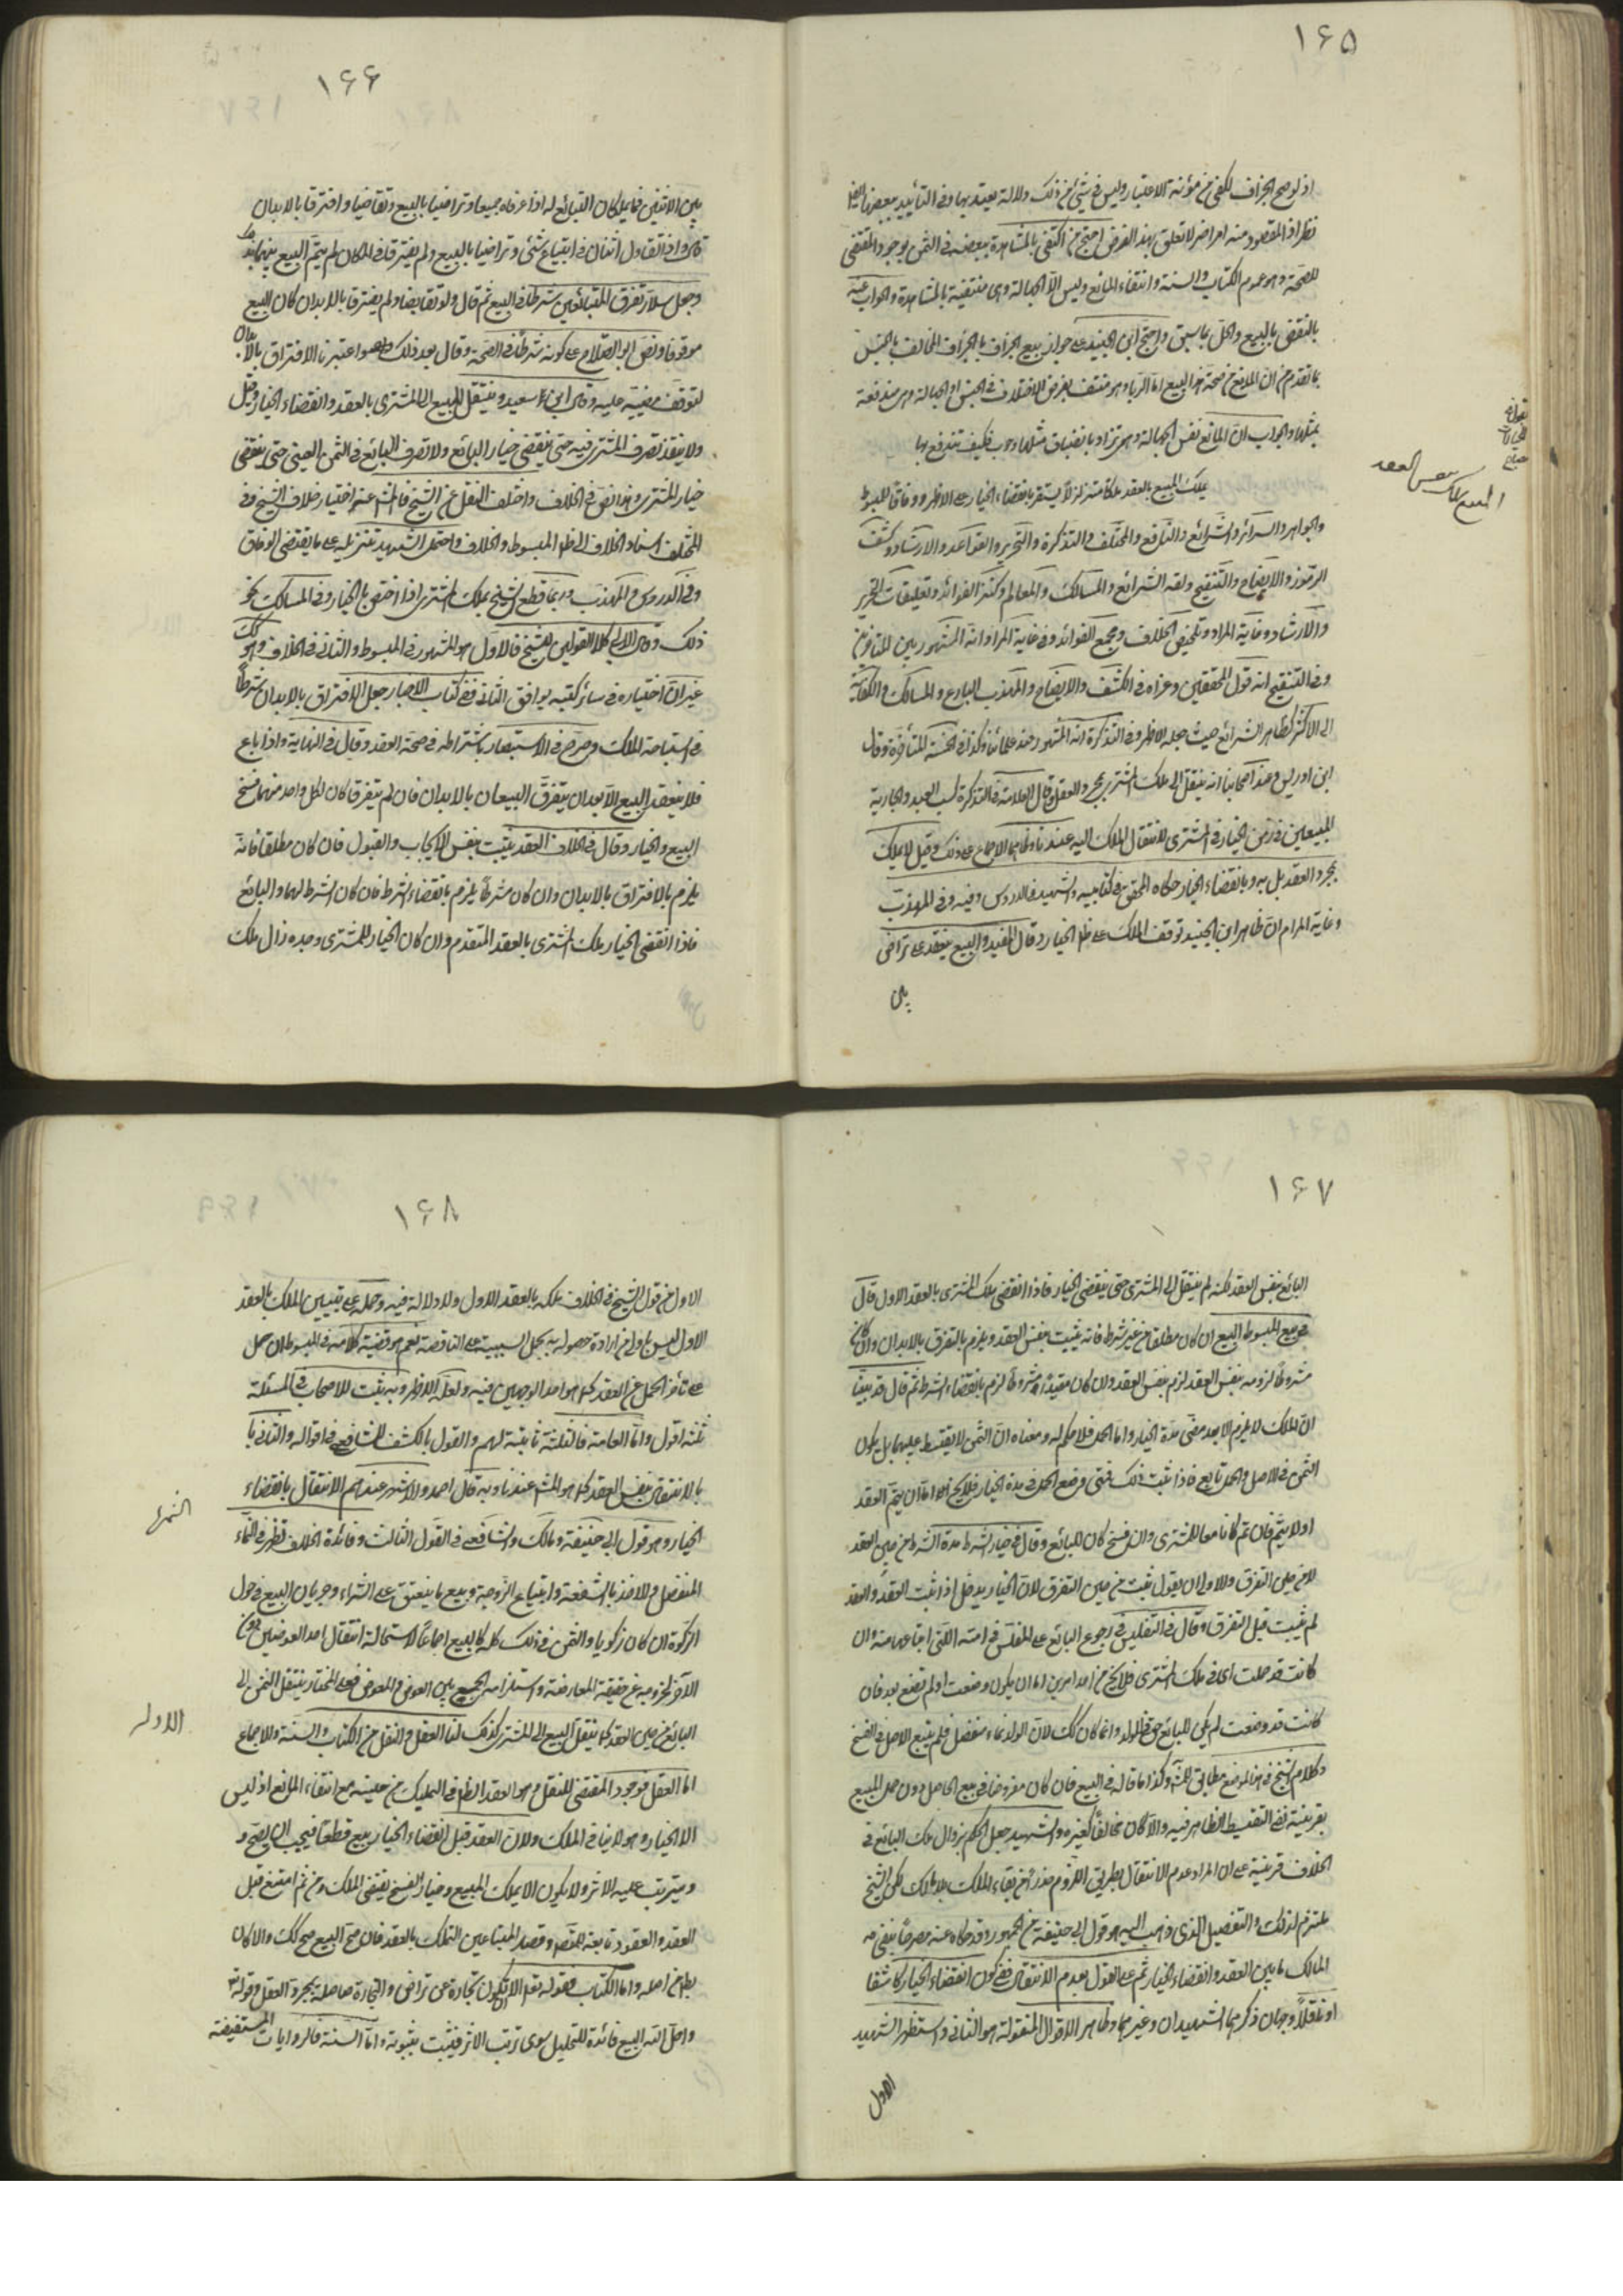 ١٦٥
اذ لو صح الجزاف لكفى مؤنة الاعتبار وليس في شيئ من ذلك دلالة يعتد بها وفي التأييد ببعضها
نظر اذ المقصود منه امر اخر لا تعلق بهذا الغرض احتج من اكتفى بالمشاهدة ببعضه في الثمن بوجود المقتضى
للصحة وهو عموم الكتاب والسنة وانتفاء المانع وليس الا الجهالة وهي منتفية بالمشاهدة والجواب عنه
بالنقض بالمبيع والحل بما سبق واحتج ابن الجنيد على جواز بيع الجزاف بالجزاف المخالف بالجنس
بما تقدم من ان المانع من صحة هذا البيع اما الربا وهو منتف بفرض الاختلاف في الجنس او الجهالة وهي مندفعة
بمثلها والجواب ان المانع نفس الجهالة وهي تزداد بانضياف مثلها وجب فكيف تندفع بها
يملك المبيع بالعقد ملكا متزلزلا يستقر بانقضاء الخيار على الاظهر وفاقا للمبسوط
والجواهر والسرائر والشرائع والنافع والمختلف والتذكرة والتحرير والقواعد والارشاد وكشف
الرموز والايضاح والتنقيح ولمعة الشرائع والمسالك والمعالم وكنز الفوائد وتعليقات التحرير
والارشاد وغاية المراد وتلخيص الخلاف ومجمع الفوائد وفي غاية المراد انه المشهور بين المتأخرين
وفي التنقيح انه قول المحققين وعزاه في الكشف والايضاح والمهذب البارع والمسالك والكفاية
الى الاكثر كظاهر الشرائع حيث جعله الاظهر وفي التذكرة انه المشهور عند علمائنا وكذا في الخمسة المتأخرة وقال
ابن ادريس وعند اصحابنا انه ينتقل الى ملك المشتري بمجرد العقد وقال العلامة في التذكرة كسب العبد والجارية
المبيعين في زمن الخيار في المشتري لانتقال الملك اليه عندنا وظاهرهما الاجماع على ذلك وقيل لا يملك
بمجرد العقد بل به وبانقضاء الخيار حكاه المحقق في كتابيه والشهيد في الدروس وفيه وفي المهذب
وغاية المرام ان ظاهر ابن الجنيد توقف الملك على الخيار وقال المفيد والبيع ينعقد على تراض
بين
المبيع يملك بنفس العقد
١٦٦
بين الاثنين فيما يملكان التبايع له اذا عرفاه جميعا وتراضيا بالبيع وتقابضا وافترقا بالابدان
قال واذا تقاول اثنان في ابتياع شئى وتراضيا بالبيع ولم يفترقا في المكان لم يتم البيع بينهما بذلك
وجعل سلار تفرق المتبائعين شرطا في البيع ثم قال ولو تقابضا ولم يفترقا بالابدان كان البيع
موقوفا ونص ابو الصلاح على كونه شرطا في الصحة وقال بعد ذلك واعتبرنا الافتراق بالابدان
لتوقف مضيه عليه وقال ابن سعيد وينتقل المبيع الى المشترى بالعقد وانقضاء الخيار وقيل
ولا ينفذ تصرف المشترى فيه حتى ينقضى خيار البائع ولا تصرف البائع في الثمن العينى حتى ينقضى
خيار المشترى وهذا نص في الخلاف واختلف النقل عن الشيخ فالمش عنه اختيار خلاف الشيخ وفي
المختلف اسناد الخلاف الى ظ المبسوط والخلاف واحتمل الشهيد تنزيله على ما يقتضى الوفاق
وفي الدروس والمهذب وربما قطع الشيخ بملك المشترى اذا اختص بالخيار وفي المسالك نحو
ذلك وقال الابى كلا القولين للشيخ فالاول هو المشهور في المبسوط والثانى في الخلاف وهو كك
غير ان اختياره في سائر كتبه يوافق الثانى ففى كتاب الاخبار جعل الافتراق بالابدان شرطا
في استباحة الملك وصرح في الاستبصار باشتراطه في صحة العقد وقال في النهاية واذا باع
فلا ينعقد البيع الا بعد ان يتفرق البيعان بالابدان فان لم يتفرقا كان لكل واحد منهما فسخ
البيع والخيار وقال في الخلاف العقد يثبت بنفس الايجاب والقبول فان كان مطلقا فانه
يلزم بالافتراق بالابدان وان كان مشروطا يلزم بانقضاء الشرط فان كان الشرط لهما او البائع
فاذا انقضى الخيار ملك المشترى بالعقد المتقدم وان كان الخيار للمشترى وحده زال ملك
١٦٧
البائع بنفس العقد لكنه لم ينتقل الى المشترى حتى ينقضى الخيار فاذا انقضى ملك المشترى بالعقد الاول قال
في بيع المبسوط البيع ان كان مطلقا من غير شرط فانه يثبت بنفس العقد ويلزم بالتفرق بالابدان وان كان
مشروطا لزومه بنفس العقد لزم بنفس العقد وان كان مقيدا مشروطا لزم بانقضاء الشرط ثم قال قد بينا
ان الملك لا يلزم الا بعد مضى مدة الخيار واما الحمل فلا حكم له ومعناه ان الثمن لا يتقسط عليهما بل يكون
الثمن في الاصل والحمل تابع فاذا ثبت ذلك فمتى وضع الحمل في مدة الخيار فلا يخ اما ان يتم العقد
او لا يتم فان تم كانا معا للمشترى وان فسخ كان للبائع وقال في خيار الشرط مدة الشرط من حين العقد
لا من حين التفرق وللاولى ان يقول يثبت من حين التفرق لان الخيار يدخل اذا ثبت العقد والعقد
لم يثبت قبل التفرق وقال في التفليس في رجوع البائع على المفلس في امته التى ابتاعها منه وان
كانت قد حملت اى في ملك المشترى فلا يخ من احد امرين اما ان يكون وضعت او لم تضع بعد فان
كانت قد وضعت لم يكن للبائع حق في الولد وانما كان كك لان الولد نماء منفصل فلم يتبع الاصل في الفسخ
وكلام الشيخ في هذا الموضع مطابق للمش وكذا ما قاله في البيع فان كان مفروضا في بيع الحامل دون حمل المبيع
بقرينة نفى التقسيط الظاهر فيه والا كان مخالفا كغيره والشهيد جعل الحكم بزوال ملك البائع في
الخلاف قرينة على ان المراد عدم الانتقال بطريق اللزوم حذرا من بقاء الملك بلا مالك لكن الشيخ
ملتزم لذلك والتفصيل الذى ذهب اليه هو قول ابى حنيفة من الجمهور وقد حكاه عنه مصرحا بنفى
المالك ما بين العقد وانقضاء الخيار ثم على القول بعدم الانتقال ففى كون انقضاء الخيار كاشفا
او ناقلا وجهان ذكرهما الشهيدان وغيرهما وظاهر الاقوال المنقولة هو الثانى واستظهر الشهيد
الاول
١٦٨
الاول من قول الشيخ في الخلاف ملكه بالعقد الاول ولا دلالة فيه وحمله على تبيين الملك بالعقد
الاول ليس باولى من ارادة حصوله به بجعل السببية على الناقصة نعم هو قضية كلامه في المبسوط ان حمل
على تأخر الحمل عن العقد كما هو احد الوجهين فيه ولعله الاظهر وبه يثبت للاصحاب في المسئلة
ثلثة اقول واما العامة فالثلثة ثابتة لهم والقول بالكشف للشافعى في اقواله والثانى
بالانتقال بنفس العقد كما هو المش عندنا وبه قال احمد والاشهر عندهم الانتقال بانقضاء
الخيار وهو قول ابى حنيفة ومالك والشافعى في القول الثالث وفائدة الخلاف تظهر في النماء
المنفصل والاخذ بالشفعة وابتياع الزوجة وبيع ما ينعتق على الشراء وجريان البيع في حول
الزكوة ان كان زكويا والثمن في ذلك كله كالمبيع اجماعا لاستحالة انتقال احد العوضين دون
الآخر لخروجه عن حقيقة المعاوضة واستلزامه الجمع بين العوض والمعوض فعلى المختار ينتقل الثمن الى
البائع من حين العقد كما ينتقل المبيع الى المشترى كذلك لنا العقل والنقل من الكتاب والسنة والاجماع
اما العقل فوجود المقتضى للنقل وهو العقد الظ في التمليك من حينه مع انتفاء المانع اذ ليس
الا الخيار وهو لا ينافى الملك ولان العقد قبل انقضاء الخيار بيع قطعا فيجب ان يصح و
ويترتب عليه الاثر ولا يكون الا يملك المبيع وخيار الفسخ يقتضى الملك ومن ثم امتنع قبل
العقد والعقود تابعة للقصد وقصد المتبايعين التملك بالعقد فان صح البيع صح كك والا كان
بط من اصله واما الكتاب فقوله تعه الا ان تكون تجارة عن تراض والتجارة حاصلة بمجرد العقد وقوله تعه
واحل الله البيع فائدة للتحليل سوى ترتب الاثر فيثبت بثبوته واما السنة فالروايات المستفيضة
الثمرة
الادلة